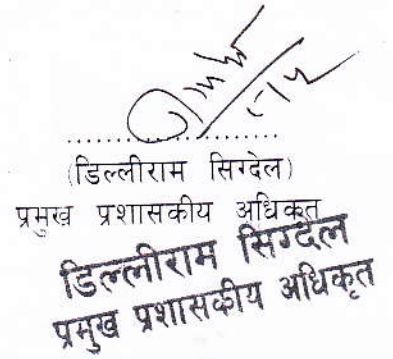 ....................................
(डिल्लीराम सिग्देल)
प्रमुख प्रशासकीय अधिकृत
डिल्लीराम सिग्देल
प्रमुख प्रशासकीय अधिकृत